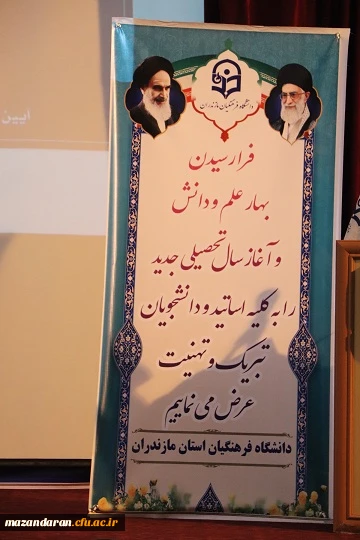 آیین
دانشگاه فرهنگیان مازندران
فرا رسیدن
بهار علم و دانش
و آغاز سال تحصیلی جدید
را به کلیه اساتید و دانشجویان
تبریک و تهنیت
عرض می نماییم
دانشگاه فرهنگیان استان مازندران
mazandaran.cfu.ac.ir